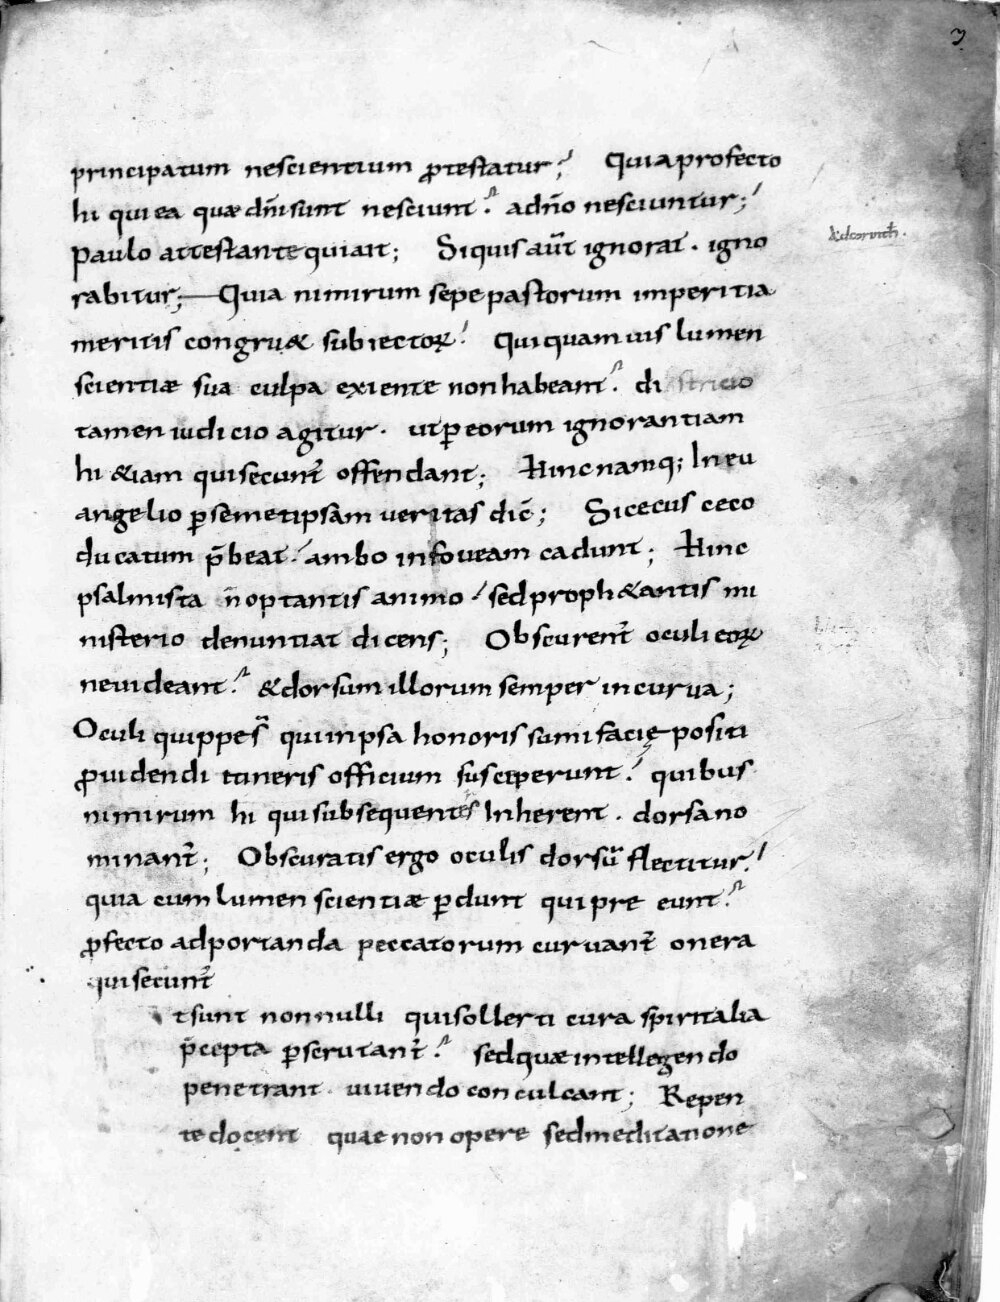 3
principatum nescientium ꝓtestatur; Quia profecto
hi qui ea quæ dñi sunt nesciunt. a dño nesciuntur;
paulo attestante qui ait; Siquis aut̄ ignorat. igno
rabitur; Quia nimirum sepe pastorum imperitia
meritis congru& subiectoꝝ. Qui quamuis lumen
scientiæ sua culpa exiente non habeant. districto
tamen iudicio agitur. ut ꝑ eorum ignorantiam
hi &iam qui secunt̄ offendant; Hinc namq; In eu
angelio ꝑ semetipsam ueritas dic̄; Si cecus ceco
ducatum p̄beat. ambo in foueam cadunt; Hinc
psalmista n̄ optantis animo. sed proph&antis mi
nisterio denuntiat dicens; Obscurent̄ oculi eoꝝ
ne uideant. & dorsum illorum semper incurua;
Oculi quippe s̄ qui in ipsa honoris sumi facię positi
ꝓuidendi itineris officium susceperunt. quibus
nimirum hi qui subsequentes Inherent. dorsa no
minant̄; Obscuratis ergo oculis dorsū flectitur.
quia cum lumen scientiæ ꝑdunt qui pre eunt.
ꝓfecto ad portanda peccatorum curuant̄ onera
qui secunt̄
t sunt nonnulli qui sollerti cura spiritalia
p̄cepta ꝑscrutant̄. sed quæ intellegendo
penetrant. uiuendo conculcant; Repen
te docent quae non opere sed meditatione